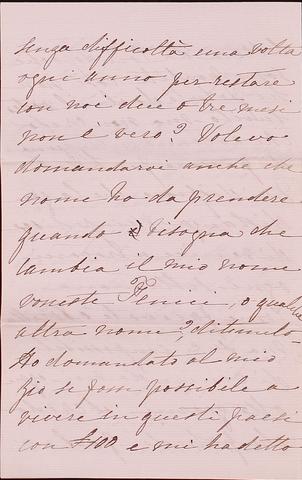 senza difficoltà una volta
ogni anno per restare
con noi due o tre mesi
non è vero? Volevo
domandarvi anche che
nome ho da prendere
quando bisogna che
cambia il mio nome
voreste Fenici, o qualche
altra nome?, ditemelo
Ho domandato al mio
Zio se fosse possibile a
vivere in questi paesi
con £100 e mi ha detto